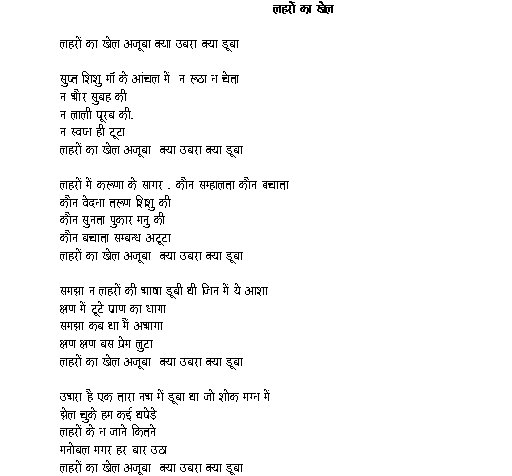 लहरों का खेल
लहरों का खेल अजूबा क्या उबरा क्या डूबा
सुप्त शिशु माँ के आंचल में न रूठा न चेता
न भौर सुबह की
न लाली पूरब की.
न स्वप्न ही टूटा
लहरों का खेल अजूबा क्या उबरा क्या डूबा
लहरों में करूणा के सागर . कौन सम्हालता कौन बचाता
कौन वेदना तरूण शिशु की
कौन सुनता पुकार मनु की
कौन बचाता सम्बन्ध अटूटा
लहरों का खेल अजूबा क्या उबरा क्या डूबा
समझा न लहरों की भाषा डूबी थी जिन में ये आशा
क्षण में टूटे प्राण का धागा
समझा कब था मैं अभागा
क्षण क्षण बस प्रेम लुटा
लहरों का खेल अजूबा क्या उबरा क्या डूबा
उभारा है एक तारा नभ में डूबा था जो शोक मग्न में
झेल चुके हम कई थपेड़े
लहरों के न जाने कितने
मनोबल मगर हर बार उठा
लहरों का खेल अजूबा क्या उबरा क्या डूबा